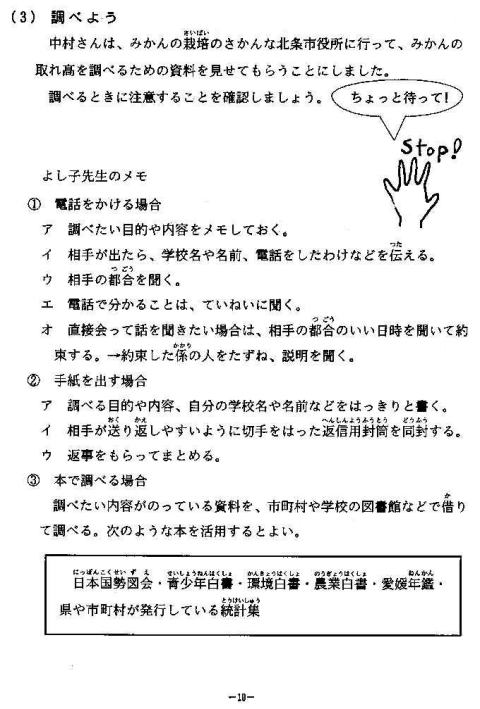 (3) 調べよう
中村さんは、みかんの栽培のさかんな北条市役所に行って、みかんの
取れ高を調べるための資料を見せてもらうことにしました。
調べるときに注意することを確認しましょう。
ちょっと待って!
Stop!
よし子先生のメモ
① 電話をかける場合
ア 調べたい目的や内容をメモしておく。
イ 相手が出たら、学校名や名前、電話をしたわけなどを伝える。
ウ 相手の都合を聞く。
エ 電話で分かることは、ていねいに聞く。
オ 直接会って話を聞きたい場合は、相手の都合のいい日時を聞いて約
束する。→約束した係の人をたずね、説明を聞く。
② 手紙を出す場合
ア 調べる目的や内容、自分の学校名や名前などをはっきりと書く。
イ 相手が送り返しやすいように切手をはった返信用封筒を同封する。
ウ 返事をもらってまとめる。
③ 本で調べる場合
調べたい内容がのっている資料を、市町村や学校の図書館などで借り
て調べる。次のような本を活用するとよい。
日本国勢図会・青少年白書・環境白書・農業白書・愛媛年鑑・
県や市町村が発行している統計集
—10—